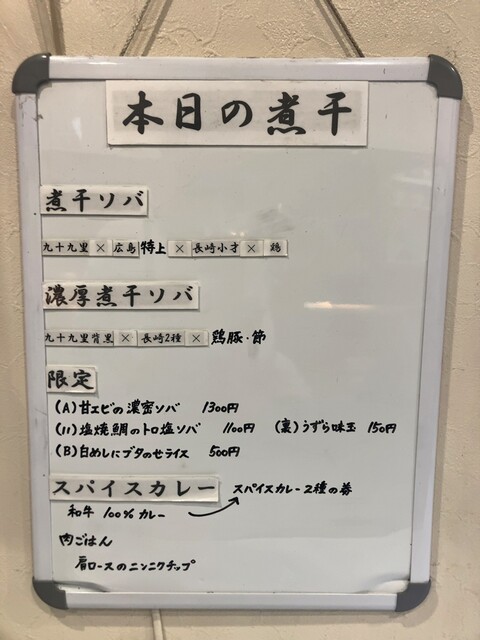 本日の煮干
煮干ソバ
九十九里 × 広島 特上 × 長崎小才 × 鶏
濃厚煮干ソバ
九十九里背黒 × 長崎2種 × 鶏豚・節
限定
(A) 甘エビの濃密ソバ 1300円
(11) 塩焼鯛のトロ塩ソバ 1100円 (裏) うずら味玉 150円
(B) 白めしにブタのせライス 500円
スパイスカレー スパイスカレー2種の券
和牛 100%カレー
肉ごはん
肩ロースのニンニクチップ